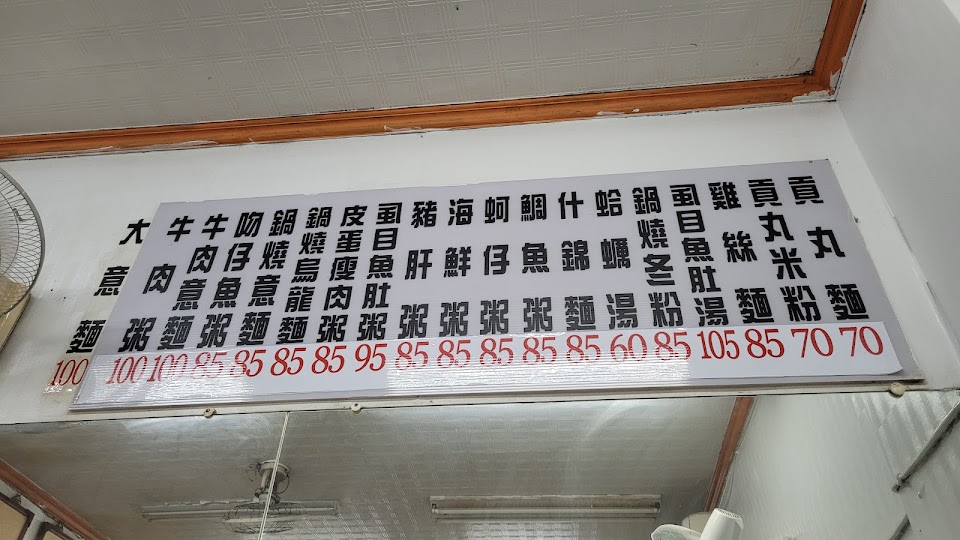 貢丸麵 70
貢丸米粉 70
雞絲麵 85
虱目魚肚湯 105
鍋燒冬粉 85
蛤蠣湯 60
什錦麵 85
鯛魚粥 85
蚵仔粥 85
海鮮粥 85
豬肝粥 85
虱目魚肚粥 95
皮蛋瘦肉粥 85
鍋燒烏龍麵 85
鍋燒意麵 85
吻仔魚粥 85
牛肉意麵 100
牛肉粥 100
大意麵 100